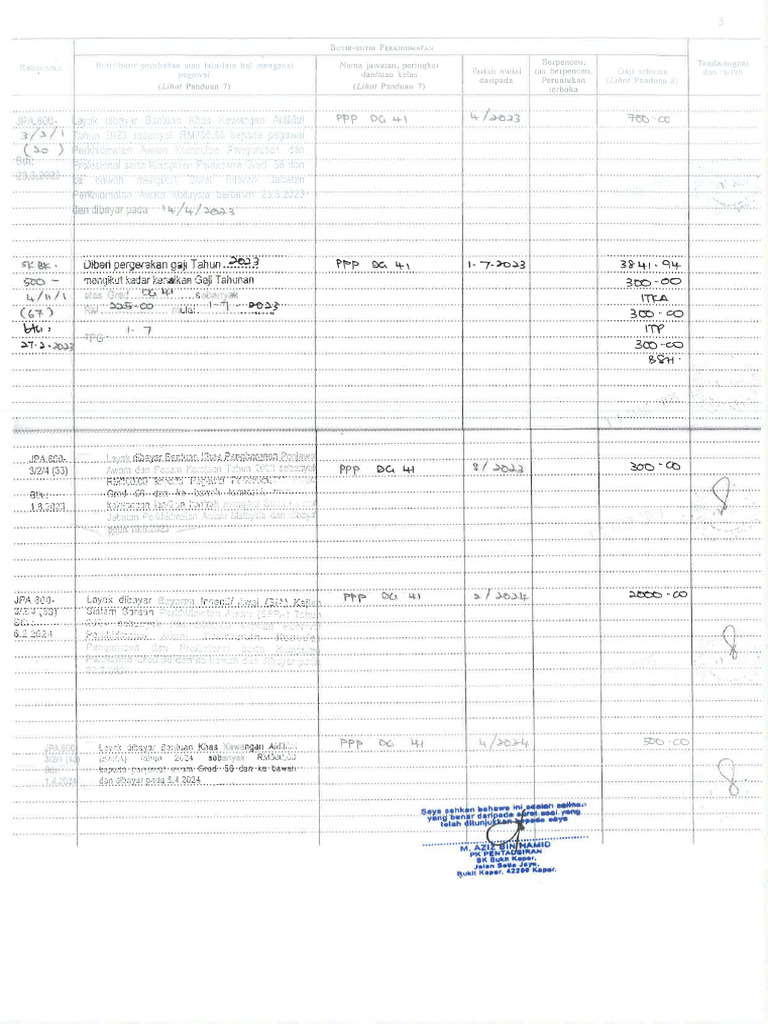 5
BUTIR-BUTIR PERKHIDMATAN
Kebenaran
Butir-butir perubahan atau lain-lain hal mengenai
pegawai
(Lihat Panduan 7)
Nama jawatan, peringkat
dan/atau kelas
(Lihat Panduan 7)
Tarikh mulai
daripada
Berpencen,
tak berpencen,
Peruntukan
terbuka
Gaji sebulan
(Lihat Panduan 8)
Tandatangan
dan tarikh
JPA.800-
3/2/1
(20)
Bth:
23.3.2023
Layak dibayar Bantuan Khas Kewangan Aidilfitri
Tahun 2023 sebanyak RM700.00 kepada pegawai
Perkhidmatan Awam Kumpulan Pengurusan dan
Profesional serta Kumpulan Pelaksana Gred 56 dan
ke bawah mengikut Surat Edaran Jabatan
Perkhidmatan Awam Malaysia bertarikh 23.3.2023
dan dibayar pada 4/4/2023
PPP DG 41
4/2023
700-00
SK BK.
500-
4/11/1
(67)
bth:
27.2.2023
Diberi pergerakan gaji Tahun 2023
mengikut kadar kenaikan Gaji Tahunan
atas Gred DG 41 sebanyak
RM 225-00 mulai 1-7-2023
TPG 1-7
PPP DG 41
1-7-2023
3841.94
300-00
ITKA
300-00
ITP
300-00
BSH.
JPA.800-
3/2/4 (33)
Bth:
1.8.2023
Layak dibayar Bantuan Khas Penghargaan Penjawat
Awam dan Pesara Kerajaan Tahun 2023 sebanyak
Gred 56 dan ke bawah
Jabatan Perkhidmatan Awam Malaysia dan dibayar
PPP DG 41
8/2023
300-00
JPA.800-
Bth:
6.2.2024
Layak dibayar Bayaran Insentif Awal (BIA) Kajian
Sistem Saraan Perkhidmatan Awam
Pengurusan dan Profesional serta Kumpulan
Pelaksana Gred 56 dan ke bawah dan dibayar pada
PPP DG 41
2/2024
2000-00
JPA.800-
Bth:
1.4.2024
Layak dibayar Bantuan Khas Kewangan Aidilfitri
Tahun 2024 sebanyak RM500.00
kepada penjawat awam Gred 56 dan ke bawah
dan dibayar pada 5.4.2024
PPP DG 41
4/2024
500-00
Saya sahkan bahawa ini adalah salinan
yang benar daripada surat asal yang
telah ditunjukkan kepada saya
M. AZIZ BIN HAMID
PK PENTADBIRAN
SK Bukit Kapar,
Jalan Setia Jaya,
Bukit Kapar, 42200 Kapar.